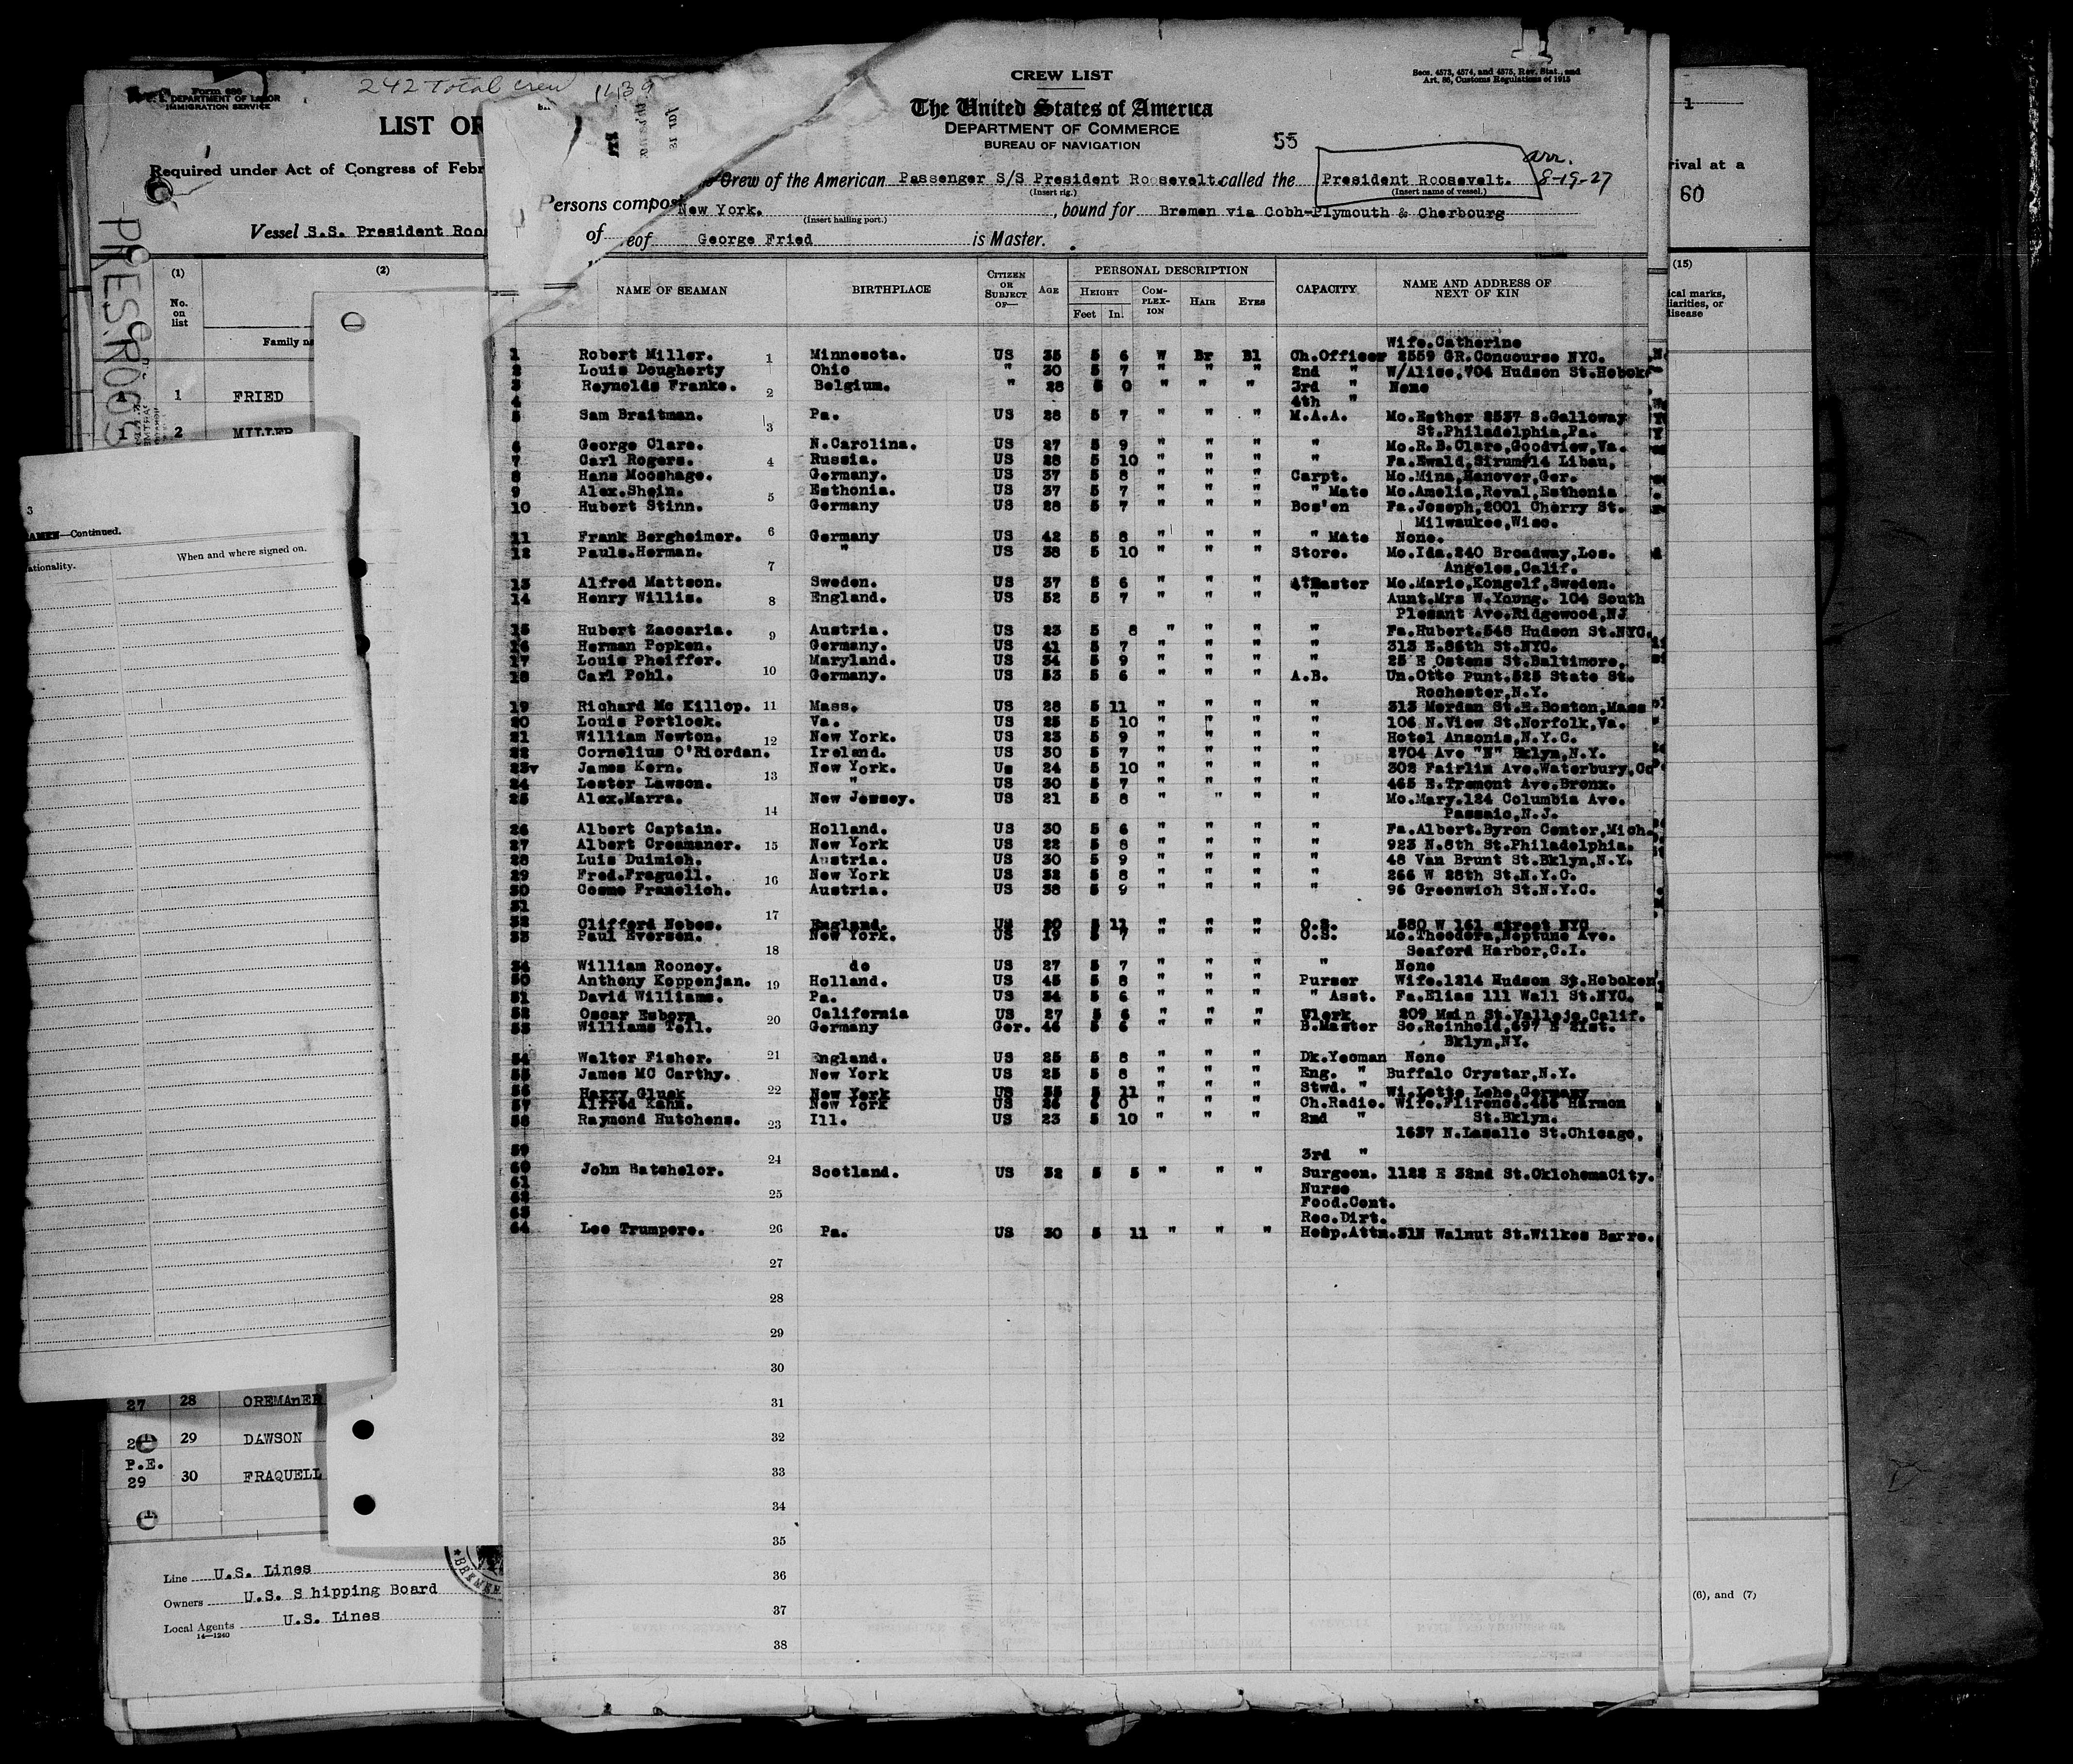 242 Total crew 1439
Form 680
U. S. DEPARTMENT OF LABOR
IMMIGRATION SERVICE
LIST OR
Required under Act of Congress of Febr
Vessel S.S. President Roo
PRES. ROOS
(1) (2)
No. on list
Family na
1 FRIED
2 MILLER
3
AMEN—Continued.
ationality. When and where signed on.
27 28 OREMAnER
29 DAWSON
P.E.
29 30 FRAQUELL
Line U.S. Lines
Owners U.S. S hipping Board
Local Agents U.S. Lines
14—1240
CREW LIST
Secs. 4573, 4574, and 4575, Rev. Stat., and
Art. 86, Customs Regulations of 1915
The United States of America
DEPARTMENT OF COMMERCE
BUREAU OF NAVIGATION
55
Crew of the American Passenger S/S President Roosevelt called the President Roosevelt. arr. 8-19-27
(Insert rig.) (Insert name of vessel.)
Persons compos New York. , bound for Bremen via Cobh-Plymouth & Cherbourg
(Insert hailing port.)
of eof George Fried is Master.
NAME OF SEAMAN BIRTHPLACE CITIZEN OR SUBJECT OF— AGE PERSONAL DESCRIPTION CAPACITY NAME AND ADDRESS OF NEXT OF KIN
HEIGHT COMPLEXION HAIR EYES
Feet In.
Wife.Catherine
1 Robert Miller. 1 Minnesota. US 35 5 6 W Br Bl Ch.Officer 2559 GR.Concourse NYC.
2 Louis Dougherty Ohio " 30 5 7 " " " 2nd " W/Alise,704 Hudson St.Hobok
3 Reynolds Franke. 2 Belgium. " 28 5 0 " " " 3rd " None
4 4th "
5 Sam Braitman. 3 Pa. US 28 5 7 " " " M.A.A. Mo.Esther 2537 S.Galloway
St.Philadelphia,Pa.
6 George Clare. N.Carolina. US 27 5 9 " " " " Mo.R.B.Clare,Goodview,Va.
7 Carl Rogers. 4 Russia. US 28 5 10 " " " " Fa.Ewald, Libau,
8 Hans Mooshage. Germany. US 37 5 8 " " " Carpt. Mo.Mina,Hanover,Ger.
9 Alex.Shein. 5 Esthonia. US 37 5 7 " " " " Mate Mo.Amelia,Reval,Esthonia
10 Hubert Stinn. Germany US 28 5 7 " " " Bos'en Fa.Joseph,2001 Cherry St.
Milwaukee,Wisc.
11 Frank Bergheimer. 6 Germany US 42 5 8 " " " " Mate None.
12 Paul.Herman. 7 " US 38 5 10 " " " Store. Mo.Ida.240 Broadway,Los.
Angeles,Calif.
13 Alfred Mattson. Sweden. US 37 5 6 " " " Mo.Marie,Kongelf,Sweden.
14 Henry Willis. 8 England. US 52 5 7 " " " " Aunt.Mrs W.Young. 104 South
Plesant Ave.Ridgewood,NJ
15 Hubert Zaccaria. 9 Austria. US 23 5 8 " " " " Fa.Hubert.548 Hudson St.NYC.
16 Herman Popken. Germany. US 41 5 7 " " " " 313 E.86th St.NYC.
17 Louis Pheiffer. Maryland. US 34 5 9 " " " " 25 E Ostens St.Baltimore.
18 Carl Pohl. 10 Germany. US 53 5 6 " " " A.B. Un.Otto Punt.525 State St.
Rochester,N.Y.
19 Richard Mc Killop. 11 Mass. US 28 5 11 " " " " 313 Merdan St.E.Boston,Mass
20 Louis Portlock. Va. US 25 5 10 " " " " 106 N.View St.Norfolk,Va.
21 William Newton. 12 New York. US 23 5 9 " " " " Hotel Ansonia,N.Y.C.
22 Cornelius O'Riordan. Ireland. US 30 5 7 " " " " 2704 Ave "N" Bklyn,N.Y.
23v James Kern. New York. Us 24 5 10 " " " " 302 Fairlin Ave.Waterbury,Co
24 Lester Lawson. 13 " US 30 5 7 " " " " 465 E.Tremont Ave.Bronx.
25 Alex.Marra. 14 New Jersey. US 21 5 8 " " " " Mo.Mary.124 Columbia Ave.
Passaic,N.J.
26 Albert Captain. Holland. US 30 5 6 " " " " Fa.Albert.Byron Center,Mich.
27 Albert Creamaner. 15 New York US 22 5 8 " " " " 923 N.8th St.Philadelphia.
28 Luis Duimich. Austria. US 30 5 9 " " " " 48 Van Brunt St.Bklyn,N.Y.
29 Fred.Fraguell. 16 New York US 32 5 8 " " " " 266 W 28th St.N.Y.C.
30 Cosmo Franelich. Austria. US 38 5 9 " " " " 96 Greenwich St.N.Y.C.
31
32 Clifford Nobes. 17 England. US 20 5 11 " " " O.S. 580 W 161 street NYC
33 Paul Eversen. New York. US 19 5 7 " " " O.S. Mo.Theodora,Neptune Ave.
18 Seaford Harbor,C.I.
34 William Rooney. do US 27 5 7 " " " " None
50 Anthony Koppenjan. 19 Holland. US 45 5 8 " " " Purser Wife.1214 Hudson St.Hoboken
51 David Williams. Pa. US 34 5 6 " " " " Asst. Fa.Elias 111 Wall St.NYC.
52 Oscar Esborn 20 California US 27 5 6 " " " Clerk 209 Main St.Vallejo,Calif.
53 Williams Tell. Germany Ger. 46 5 6 " " " B.Master So.Reinhold,697 E 21st.
Bklyn,NY.
54 Walter Fisher. 21 England. US 25 5 8 " " " Dk.Yeoman None
55 James MC Carthy. New York US 25 5 8 " " " Eng. " Buffalo Crystar,N.Y.
56 Harry Gluck 22 New York US 35 5 11 " " " Stwd. " Wi.Lotte Lehe,Germany
57 Alfred Kahn. New York US 26 6 0 " " " Ch.Radio. Wife.Flirence.466 Harmon
58 Raymond Hutchens. 23 Ill. US 23 5 10 " " " 2nd " St.Bklyn.
1637 N.Lasalle St.Chicago.
59 24 3rd "
60 John Batchelor. Scotland. US 32 5 5 " " " Surgeon. 1122 E 32nd St.OklohemaCity.
61 Nurse
62 25 Food.Cont.
63 Rec.Dirt.
64 Lee Trumpore. 26 Pa. US 30 5 11 " " " Hosp.Attn. Walnut St.Wilkes Barre.
27
28
29
30
31
32
33
34
35
36
37
38
1
rival at a
60
(15)
ical marks,
liarities, or
disease
(6), and (7)